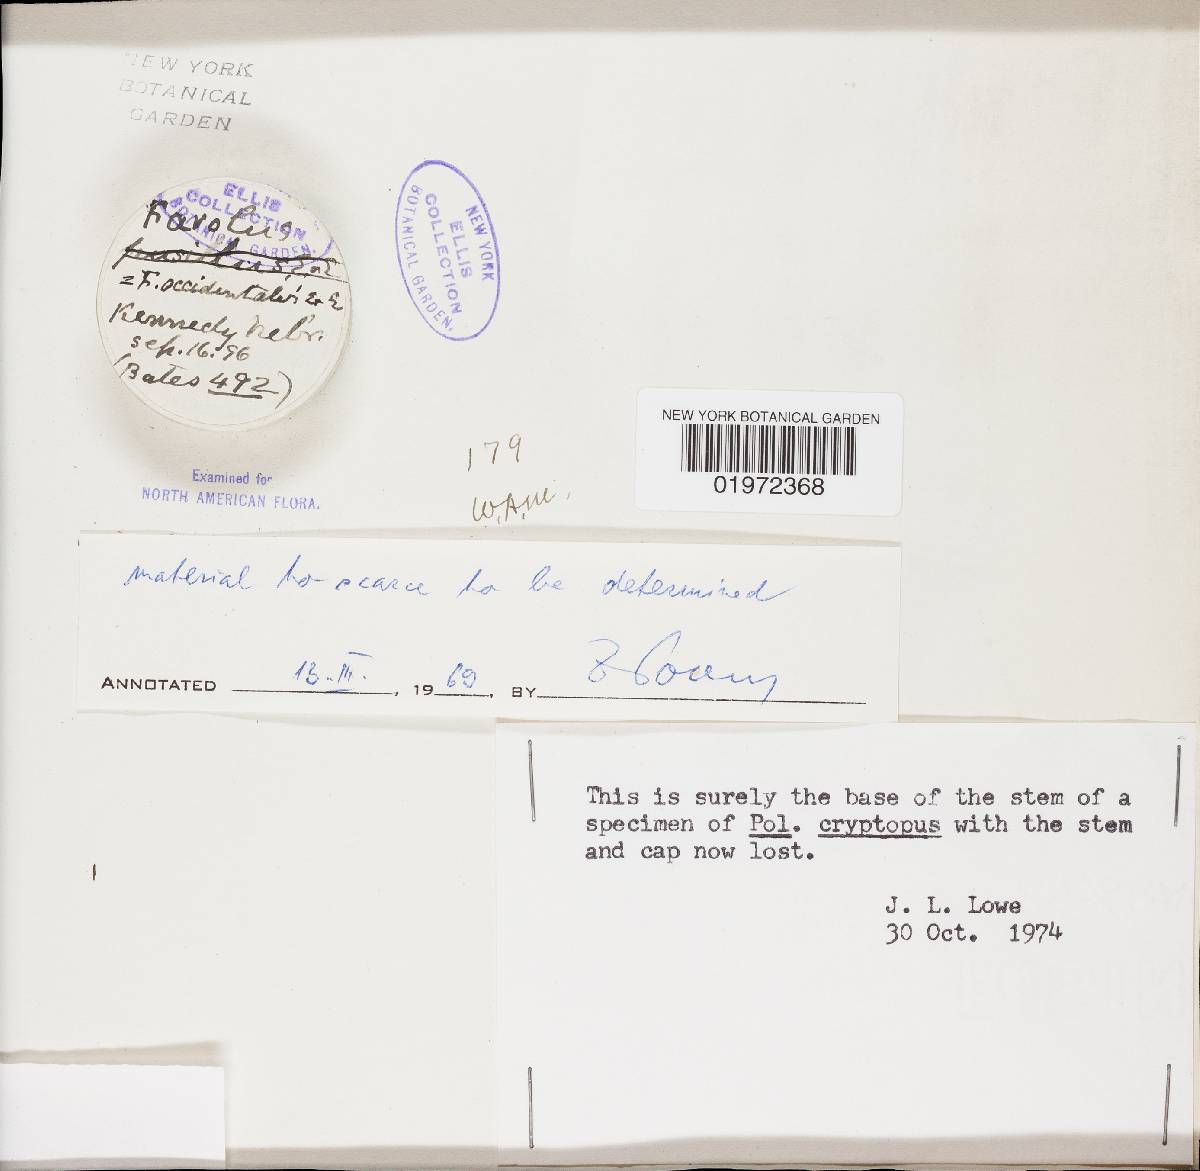 NEW YORK
BOTANICAL
GARDEN
ELLIS
COLLECTION
BOTANICAL GARDEN.
Favolus
pusillus, E&E
= F. occidentalis E & E
Kennedy Nebr.
sep. 16. 96
(Bates 492)
NEW YORK
ELLIS
COLLECTION
BOTANICAL GARDEN.
Examined for
NORTH AMERICAN FLORA.
179
W.A.M.
NEW YORK BOTANICAL GARDEN
01972368
material to scarce to be determined
ANNOTATED 13. III. , 1969, BY
This is surely the base of the stem of a
specimen of Pol. cryptopus with the stem
and cap now lost.
J. L. Lowe
30 Oct. 1974